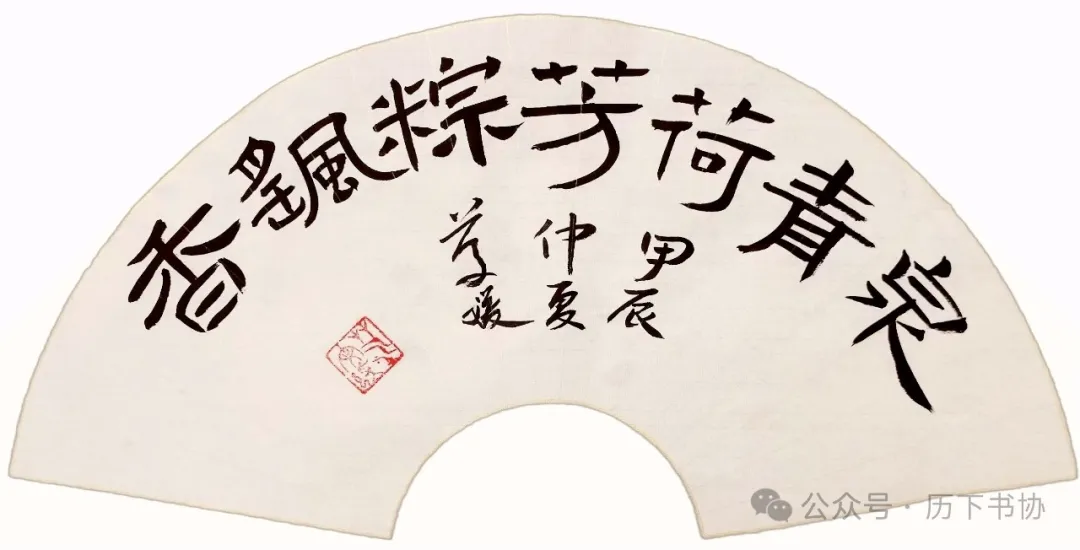 泉青荷芳粽颻香
甲辰
仲夏
媛
公众号 · 历下书协